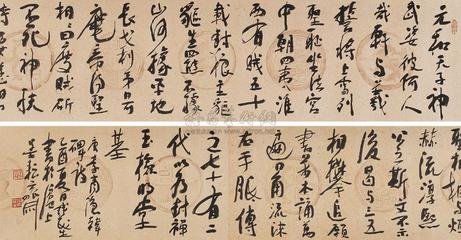 元和天子神
武姿彼何人
哉軒与羲
誓将上雪列
聖恥坐法宫
中朝四夷淮
西有賊五十
載封狼生貙
貙生羆不據
山河據平地
長戈利矛日可
麾帝得聖
相相曰度賊斫
不死神扶
赫流淳熙
公之斯文不示
後曷与三五
相攀追願
書萬本誦萬
過口角流沫
右手胝傳
之七十有二
代以為封禪
玉檢明堂
基
唐李商隱韓
碑詩